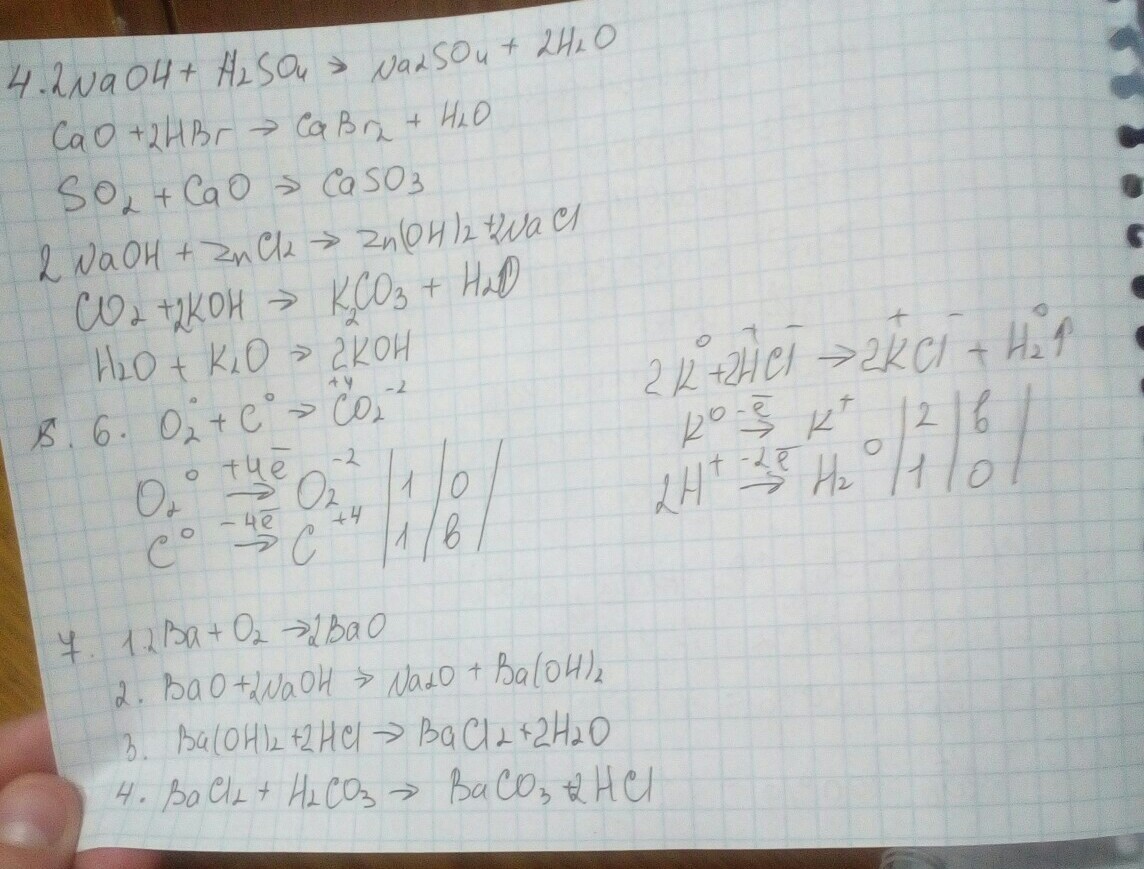 4. 2NaOH + H₂SO₄ → Na₂SO₄ + 2H₂O
CaO + 2HBr → CaBr₂ + H₂O
SO₂ + CaO → CaSO₃
2NaOH + ZnCl₂ → Zn(OH)₂ + 2NaCl
CO₂ + 2KOH → K₂CO₃ + H₂O
H₂O + K₂O → 2KOH
6. O₂⁰ + C⁰ → C⁺⁴O₂⁻²
O₂⁰ +4ē → O₂⁻² | 1 | о |
C⁰ -4ē → C⁺⁴ | 1 | в |
2K⁰ + 2H⁺Cl⁻ → 2K⁺Cl⁻ + H₂⁰↑
K⁰ -ē → K⁺ | 2 | в |
2H⁺ -2ē → H₂⁰ | 1 | о |
7. 1. 2Ba + O₂ → 2BaO
2. BaO + 2NaOH → Na₂O + Ba(OH)₂
3. Ba(OH)₂ + 2HCl → BaCl₂ + 2H₂O
4. BaCl₂ + H₂CO₃ → BaCO₃ + 2HCl